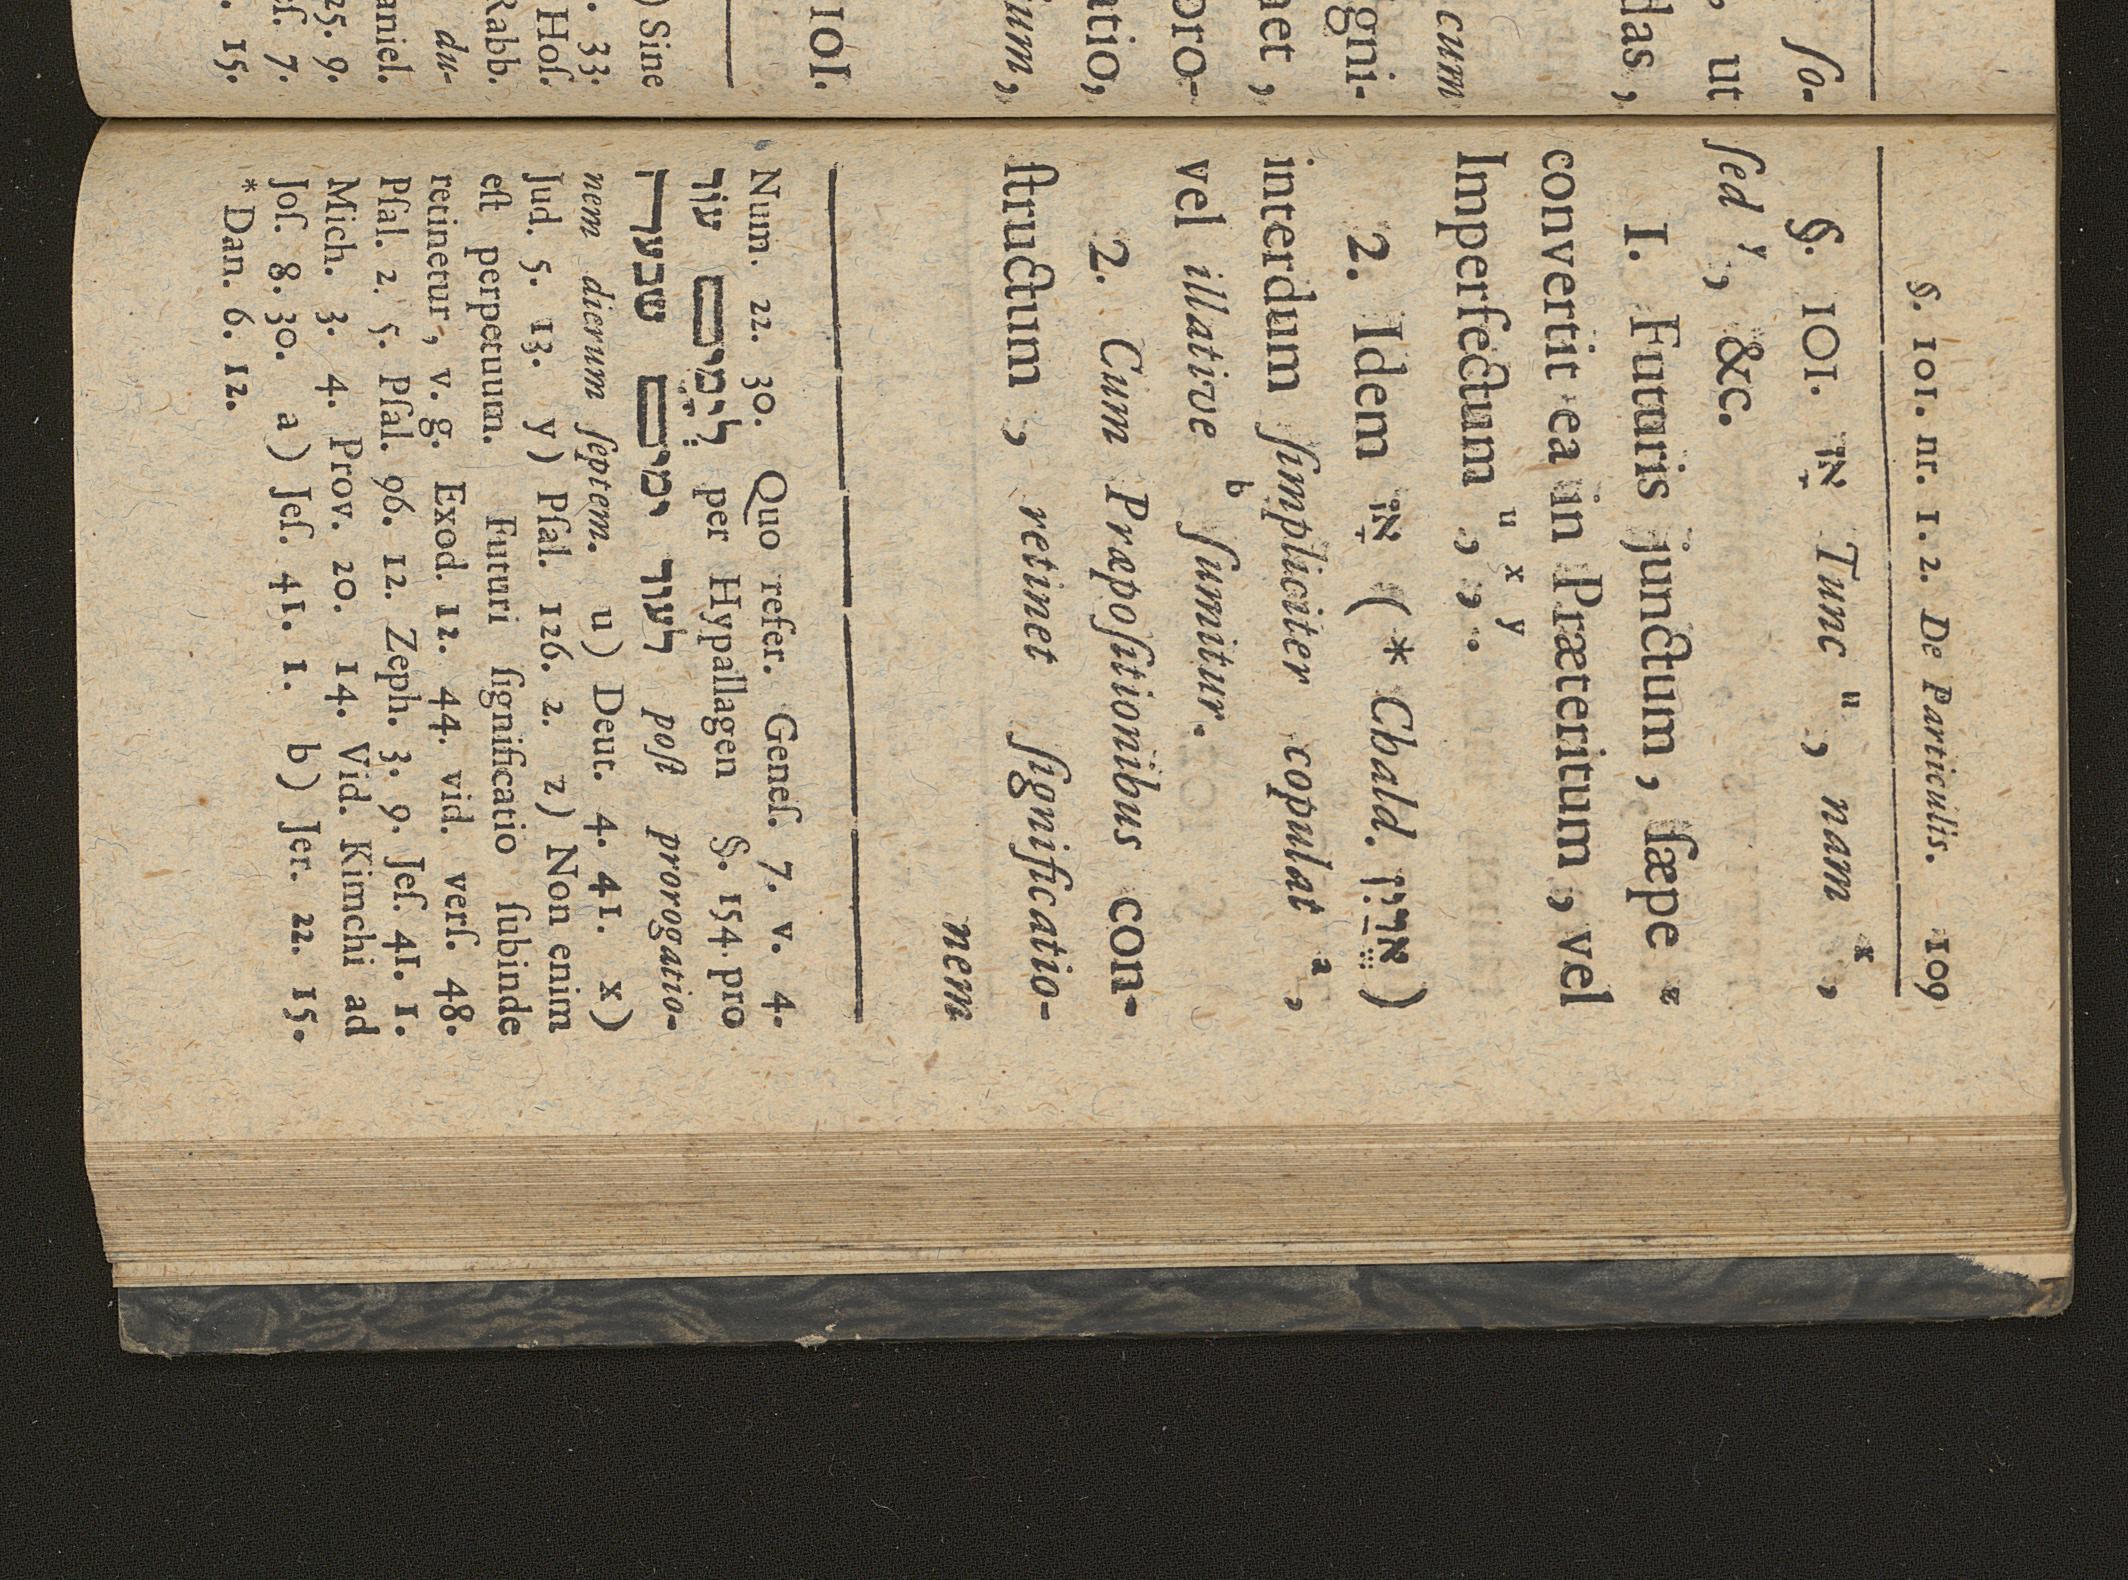 ſo.
, ut
das ,
cum
gni-
net ,
pro-
atio,
ium,
101.
) Sine
. 33.
Hoſ.
Rabb.
du-
aniel.
25. 9.
eſ. 7.
. 15.
§. 101. nr. 1. 2. De Particulis. 109
§. 101. אָז Tunc u , nam x ,
ſed y , &c.
1. Futuris junctum, ſæpe z
convertit ea in Præteritum, vel
Imperfectum u , x , y .
2. Idem אָז ( * Chald. אֱדַיִן )
interdum ſimpliciter copulat a ,
vel illative b ſumitur.
2. Cum Præpoſitionibus con-
ſtructum , retinet ſignificatio-
nem
Num. 22. 30. Quo refer. Geneſ. 7. v. 4.
לְיָמִים עוד per Hypallagen §. 154. pro
לעוד ימים שבעה poſt prorogatio-
nem dierum ſeptem. u) Deut. 4. 41. x)
Jud. 5. 13. y) Pſal. 126. 2. z) Non enim
eſt perpetuum. Futuri ſignificatio ſubinde
retinetur, v. g. Exod. 12. 44. vid. verſ. 48.
Pſal. 2. 5. Pſal. 96. 12. Zeph. 3. 9. Jeſ. 41. 1.
Mich. 3. 4. Prov. 20. 14. Vid. Kimchi ad
Joſ. 8. 30. a) Jeſ. 41. 1. b) Jer. 22. 15.
* Dan. 6. 12.